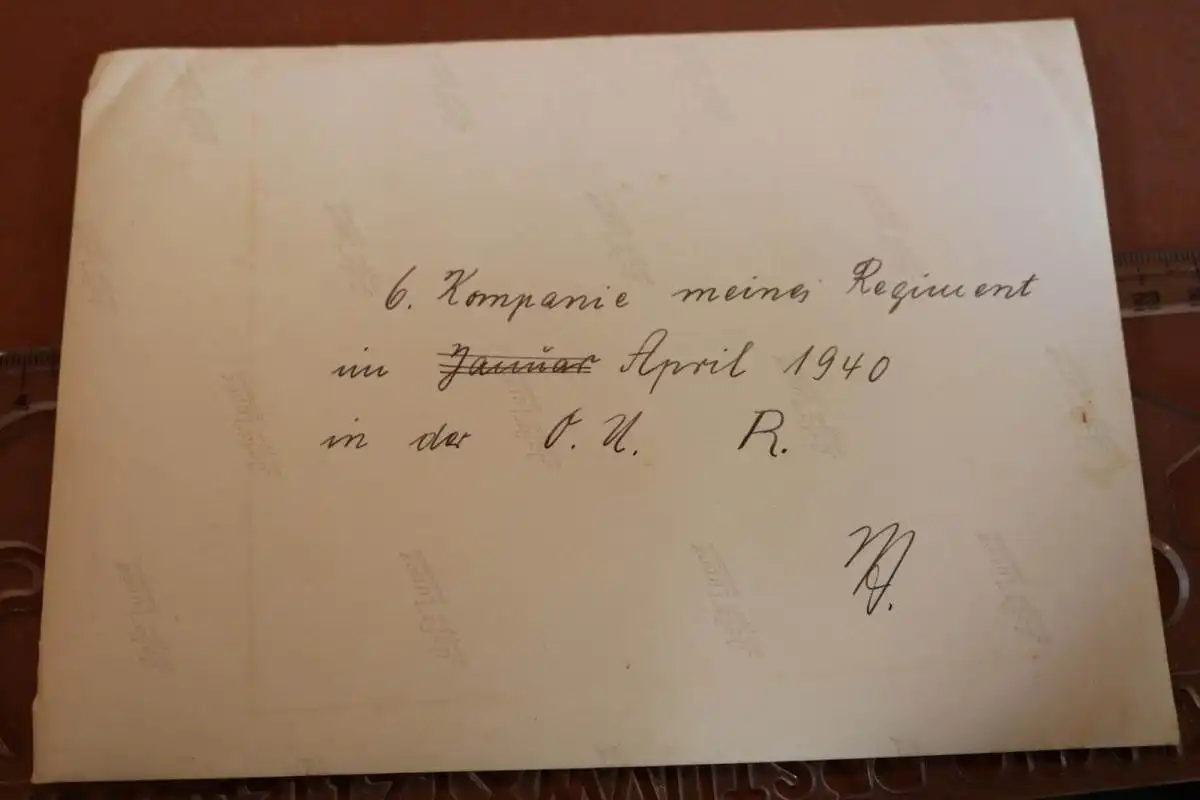 6. Kompanie meines Regiment
im ~~Januar~~ April 1940
in der O. U. R.